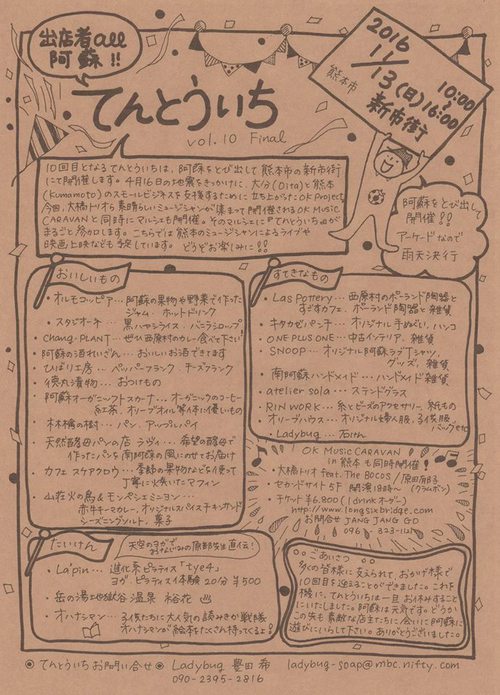 出店者all
阿蘇!!
てんとういち
vol.10 Final
2016
11/13(日)
10:00
16:00
熊本市
新市街
10回目となるてんとういちは、阿蘇をとび出して熊本市の新市街
にて開催します。4月16日の地震をきっかけに、大分(Oita)と熊本
(Kumamoto)のスモールビジネスを支援するために立ち上がったOK Project
今回、大橋トリオら素晴らしいミュージシャンが集まって開催されるOK MUSIC
CARAVANと同時にマルシェも開催。そのマルシェにPてんとういちが
まるごと参加します。こちらでは熊本のミュージシャンによるライブや
映画上映なども予定しています。どうぞお楽しみに!!
阿蘇をとび出して
開催!!
アーケードなので
雨天決行
おいしいもの
・オルモコッピア…阿蘇の果物や野菜で作った
ジャム・ホットドリンク
・スタジオーネ…黒いハヤシライス・バニラシロップ
・chang-PLANT…せひ西原村のカレー食べてさい!
・阿蘇の酒れいざん…おいしいお酒できてます
・ひばり工房…ペッパーフランク・チーズフランク
・徳丸漬物…おつけもの
・阿蘇オーガニックスカーナ…オーガニックのコーヒー
紅茶、オリーブオイル等体に優しいもの
・木林檎の樹…パン、アップルパイ
・天然酵母パンの店 ラヴィ…希望の酵母で
作ったパンを南阿蘇の風にのせてお届け
・カフェ スケアクロウ…季節の果物などを使って
丁寧に火焼いたマフィン
・山荘火の鳥&モンペシェミニヨン…
赤牛キーマカレー、オリジナルスパイスチキンサンド
シーズニングソルト、菓子
すてきなもの
・Las Pottery…西原村のポーランド陶器と
すずめカフェ、ポーランド陶器と雑貨
・キタカゼパンチ…オリジナル手ぬぐい、ハンコ
・ONE PLUS ONE…中古インテリア、雑貨
・SNOOP…オリジナル阿蘇ラブTシャツ、
グッズ、雑貨
・南阿蘇ハンドメイド…ハンドメイド雑貨
・atelier sola…ステンドグラス
・RIN WORK…糸とビーズのアクセサリー、紙もの
・オリーブハウス…オリジナル婦人服、子供服
バックetc
・Ladybug…石けん
OK MUSIC CARAVAN
in 熊本も同時開催!
・大橋トリオ feat. THE BOCOS/原田郁子
・セカンドサイト5F 開演18時〜 (クラムボン)
・チケット ¥6,800(1drinkオーダー)
http://www.longsixbridge.com
お問合せ JANG JANG GO
096 323-1121
たいけん
天空のヨガで
おなじみの原部先生直伝!
・La'pin…進化系ピラティス「tye4」
ヨガ、ピラティス体験 20分 ¥500
・岳の湯地獄谷温泉 裕花
・オハナシマン…子供たちに大人気の読みきか戦隊
オハナシマンが絵本をたくさん持ってくるよ!
ごあいさつ
多くの皆様に支えられて、おかげ様で
10回目を迎えることができました。これを
機に、てんとういちは一旦お休みすること
にいたしました。阿蘇は元気です。どうか
この先も素敵な店主たちに会いに阿蘇に
遊びにいらして下さい。ありがとうございました。
◎てんとういち お問い合せ◎ Ladybug 豊田 希 ladybug-soap@mbc.nifty.com
090-2395-2816